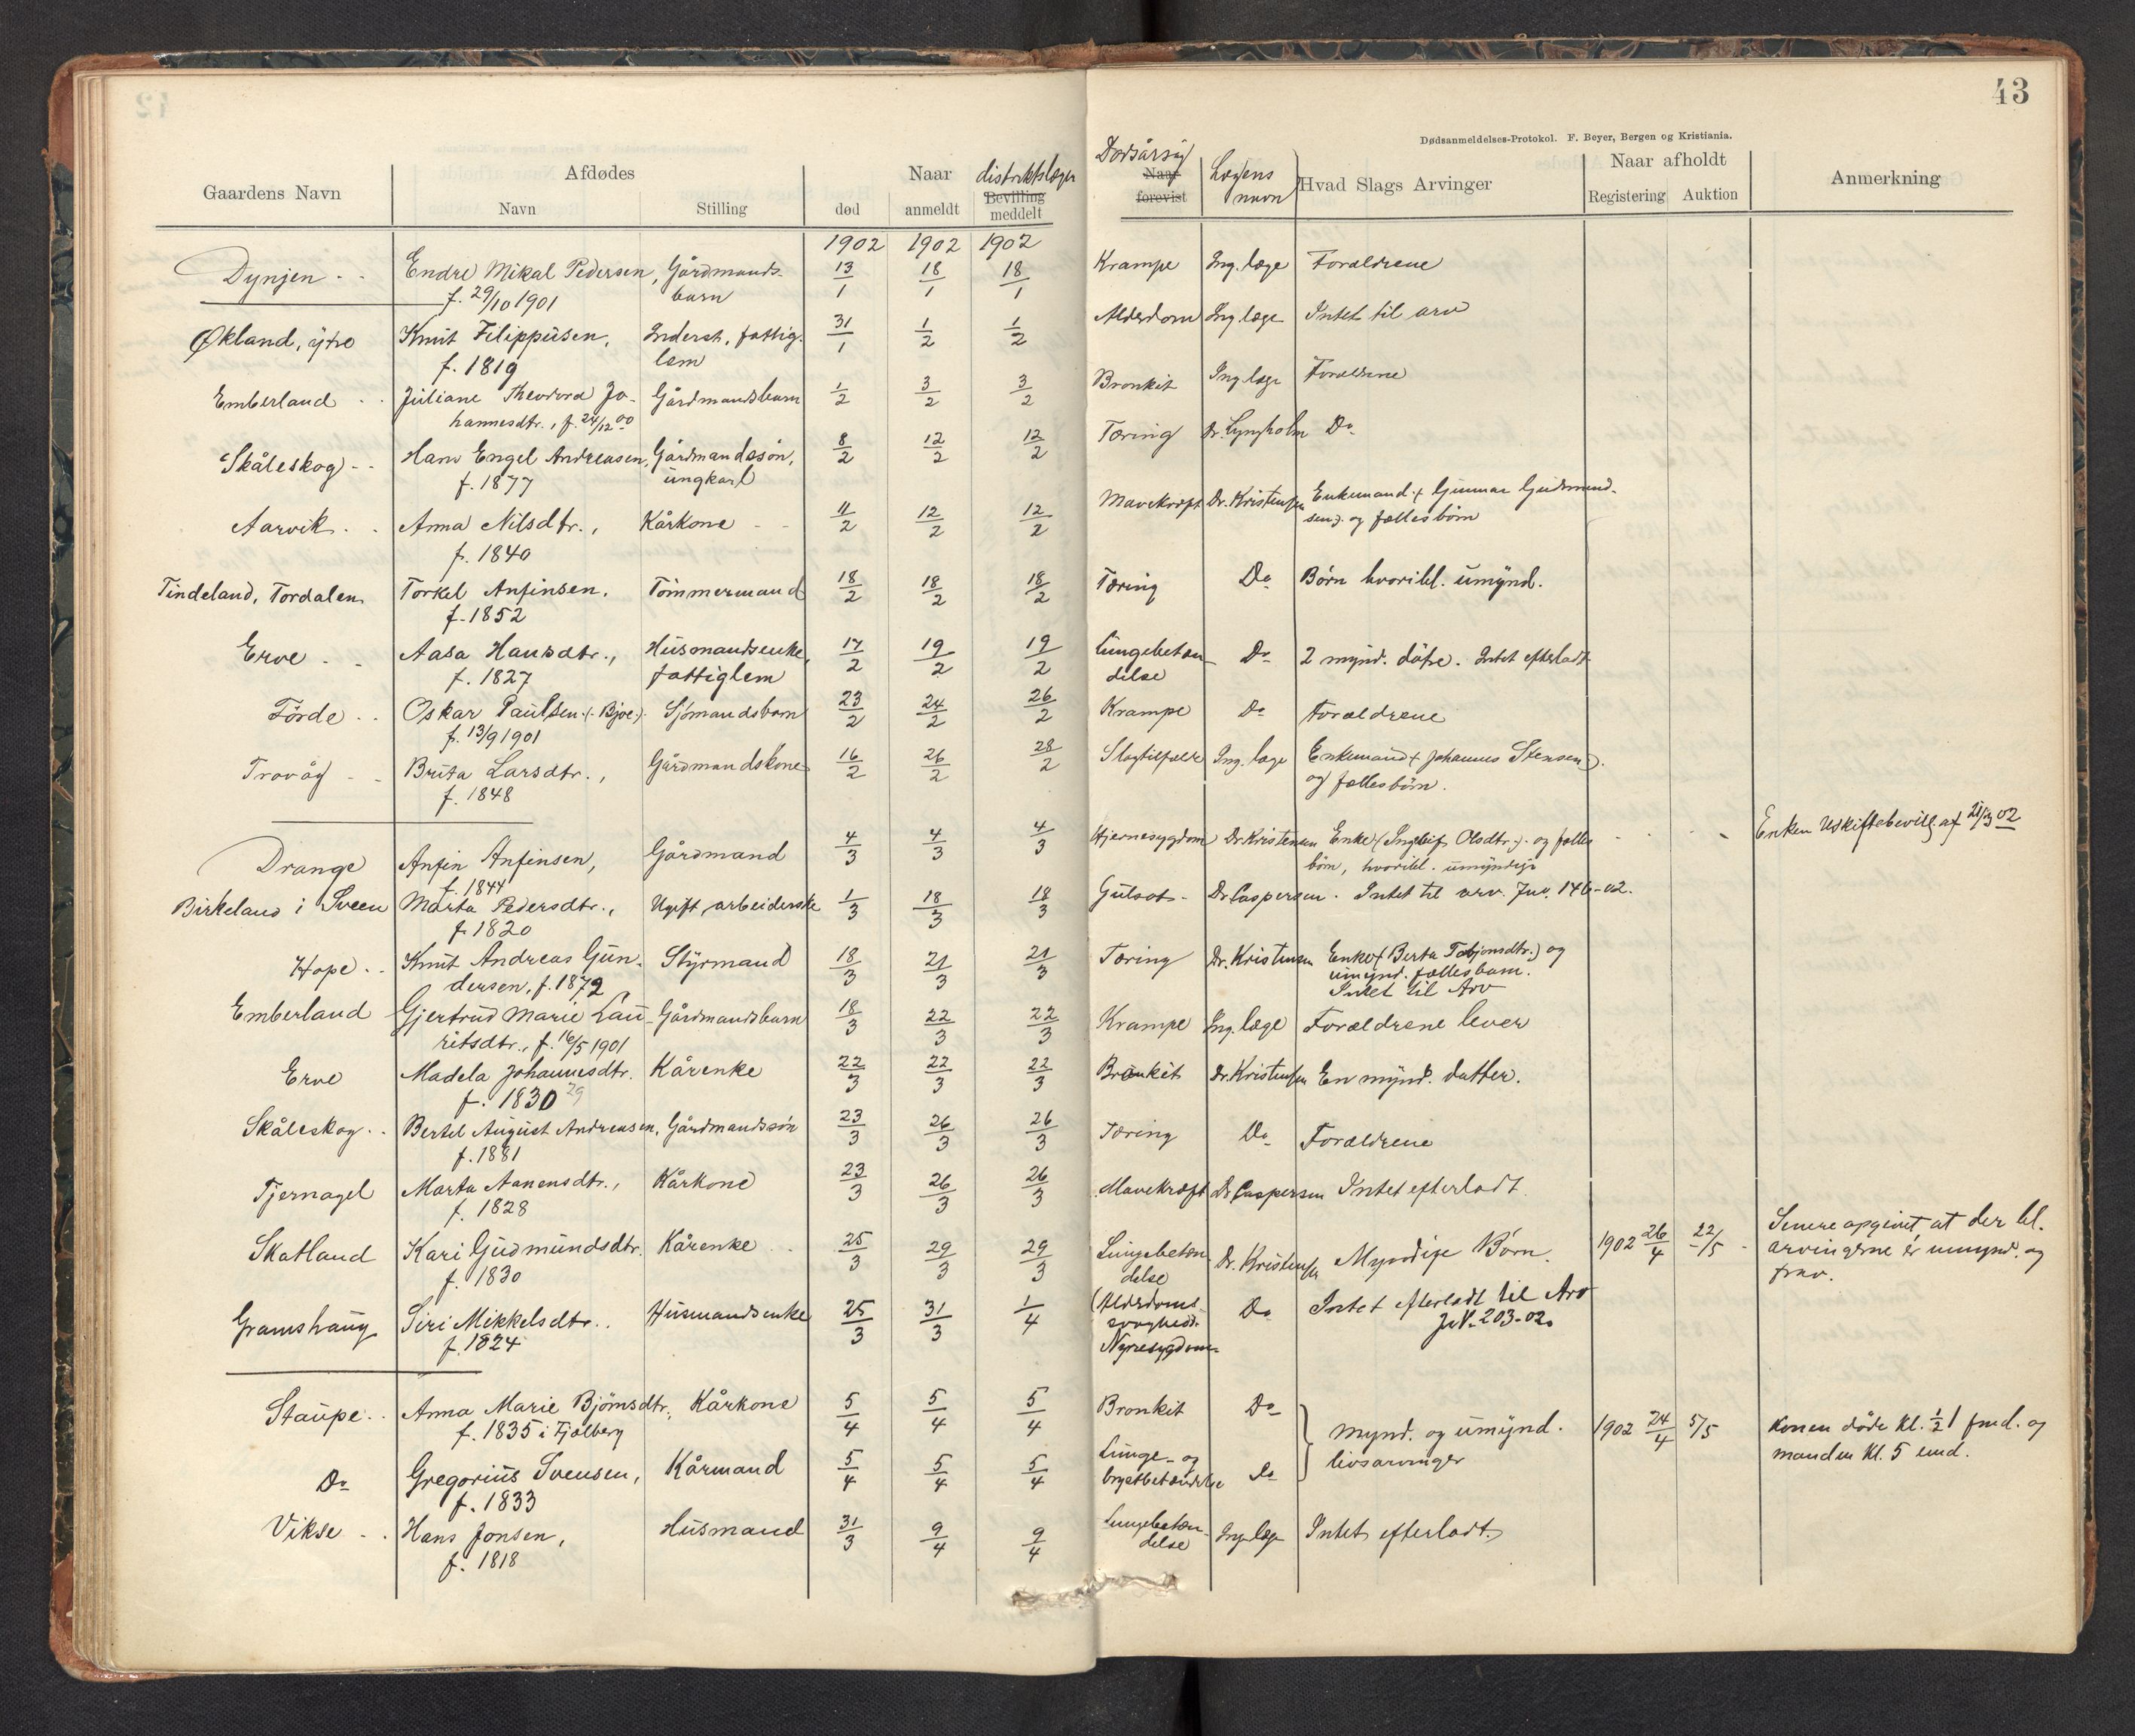 43
Dødsanmeldelses-Protokol. F. Beyer, Bergen og Kristiania.
Gaardens Navn | Afdødes | Naar | distriktslæger | Dødsårsag | Lægens navn | Hvad Slags Arvinger | Naar afholdt | Anmerkning
Navn | Stilling | død | anmeldt | Bevilling meddelt | Naar forevist | Registering | Auktion
1902 1902 1902
Dynjen . . Endre Mikal Pedersen, Gårdmands- 13/1 18/1 18/1 Krampe Ing. læge Forældrene
f. 29/10 1901 barn
Økland, ytre Knut Filippusen, Inderst, fattig- 31/1 1/2 1/2 Alderdom Ing. læge Intet til arv
f. 1819 lem
Emberland . . Juliane Theodora Jo- Gårdmandsbarn 1/2 3/2 3/2 Bronkit Ing. læge Forældrene
hannesdtr., f. 24/12 00
Skåleskog . . Hans Engel Andreasen, Gårdmandssøn, 8/2 12/2 12/2 Tæring Dr. Lyngholm Do
f. 1877 ungkarl
Aarvik . . Anna Nilsdtr., Kårkone 11/2 12/2 12/2 Mavekræft Dr. Kristensen Enkemand (Gunnar Gudmund-
f. 1840 sen) og fællesbörn
Tindeland, Tordalen Torkel Anfinsen, Tömmermand 18/2 18/2 18/2 Tæring Do Börn hvoribl. umynd.
f. 1852
Erve . . Aasa Hansdtr., Husmandsenke, 17/2 19/2 19/2 Lungebetæn- Do 2 mynd. døtre. Intet efterladt
f. 1827 fattiglem delse
Förde . . Oskar Paulsen (Bjoe) Sjömandsbarn 23/2 24/2 26/2 Krampe Do Forældrene
f. 13/9 1901
Trovåg . . Brita Larsdtr., Gårdmandskone 16/2 26/2 28/2 Slagtilfælde Ing. læge Enkemand (Johannes Stensen)
f. 1848 og fællesbörn.
Drange Anfin Anfinsen, Gårdmand 4/3 4/3 4/3 Hjernesygdom Dr Kristensen Enke (Ingleif Olsdtr.) og fælles Enken Uskiftebevill. af 21/3 02
f. 1844 börn, hvoribl. umyndige
Birkeland i Sveen Marta Pedersdtr., Ugift arbeiderske 1/3 18/3 18/3 Gulsot - Dr Caspersen. Intet til arv. Jnv. 146-02.
f. 1820
Hope . . Knut Andreas Gun- Styrmand 18/3 21/3 21/3 Tæring Dr. Kristensen Enke (Berta Torbjonsdtr.) og
dersen, f. 1872 umynd. fællesbarn.
Intet til Arv
Emberland Gjertrud Marie Lau- Gårdmandsbarn 18/3 22/3 22/3 Krampe Ing. læge Forældrene lever
ritsdtr., f. 16/5 1901
Erve Madela Johannesdtr. Kårenke 22/3 22/3 22/3 Bronkit Dr. Kristensen En mynd. datter.
f. 1830 29
Skåleskog . . Bertel August Andreasen, Gårdmandssön 23/3 26/3 26/3 Tæring Do Forældrene
f. 1881
Tjernagel Marta Aanensdtr., Kårkone 23/3 26/3 26/3 Mavekræft Dr Caspersen Intet efterladt
f. 1828
Skatland Kari Gudmundsdtr. Kårenke . . 25/3 29/3 29/3 Lungebetæn- Dr. Kristensen Myndige Börn. 1902 26/4 22/5 Senere opgivet, at der bl.
f. 1830 delse arvingerne er umynd. og
frav.
Gramshaug Siri Mikkelsdtr. . Husmandsenke 25/3 31/3 1/4 (Alderdoms- Do Intet efterladt til Arv
f. 1824 svaghed) JV. 203-02.
Nyresygdom
Staupe . . Anna Marie Bjørnsdtr., Kårkone 5/4 5/4 5/4 Bronkit Do mynd. og umynd. 1902 24/4 5/5 Konen döde kl. 1/2 1 fmd. og
f. 1835 i Fjelberg livsarvinger manden kl. 5 emd.
Do Gregorius Svensen, Kårmand 5/4 5/4 5/4 Lunge- og Do
f. 1833 brystbetændelse
Vikse . . Hans Jonsen, Husmand 31/3 9/4 9/4 Lungebetæn- Ing. læge Intet efterladt.
f. 1818 delse